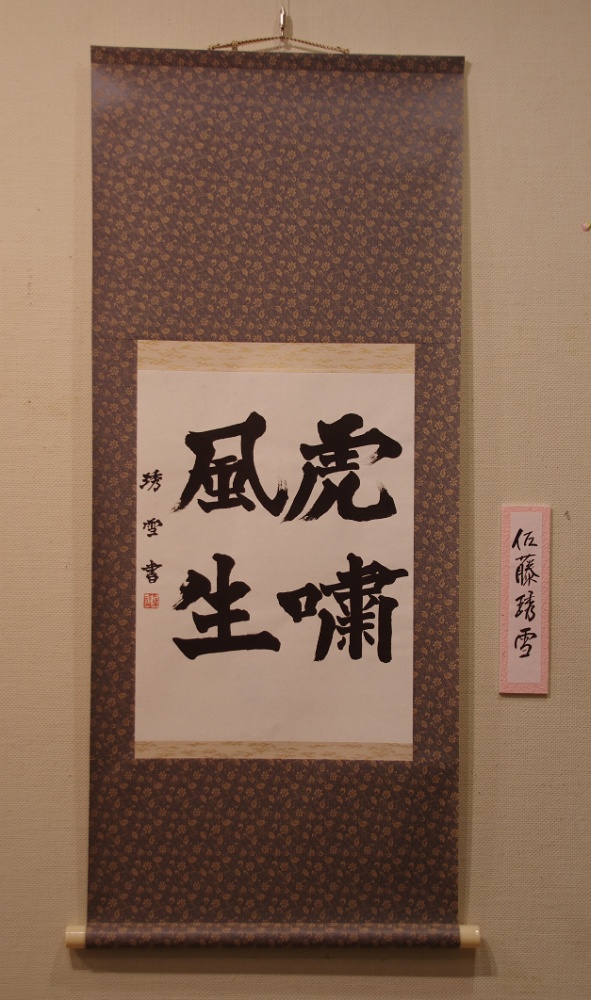 虎嘯
風生
琇雪書
佐藤琇雪